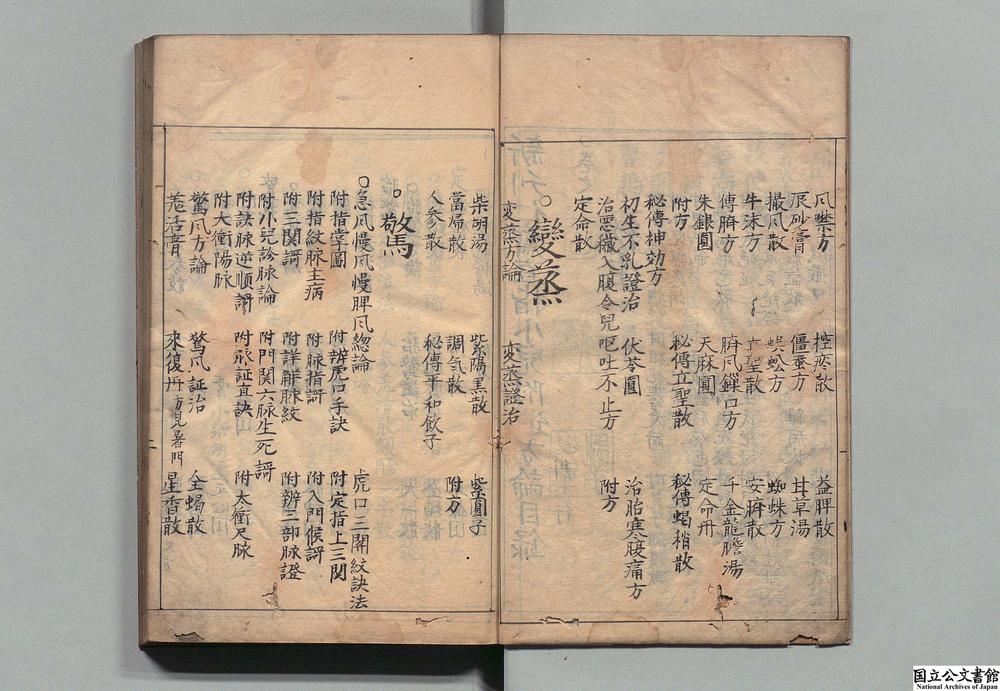 風噤方 控痰散 益脾散
辰砂膏 僵蚕方 甘草湯
撮風散 蜈蚣方 蜘蛛方
牛沫方 立聖散 安臍散
傅臍方 臍風鎖口方 千金龍膽湯
朱銀圓 天麻圓 定命丹
附方 秘傳立聖散 秘傳蝎稍散
秘傳神効方
初生不乳證治 伏苓圓 治胎寒腹痛方
治惡穢入腹令兒呕吐不止方 附方
定命散
○變蒸
変蒸方論 変蒸證治
柴胡湯 紫陽黒散 紫圓子
當歸散 調气散 附方
人参散 秘傳平和飲子
○驚
○急風慢風慢脾風総論 虎口三関紋訣法
附指掌圖 附辨虎口手訣 附定指上三関
附指紋脉主病 附脉指謌 附入門候謌
附三関謌 附詳解脉紋 附辨三部脉證
附小兒診脉論 附門関六脉生死謌
附訣脉逆順謌 附脉証直訣 附太衝尺脉
附大衝陽脉
驚风方論 驚风証治 全蝎散
羗活膏 來復丹方見暑門 星香散
国立公文書館
National Archives of Japan